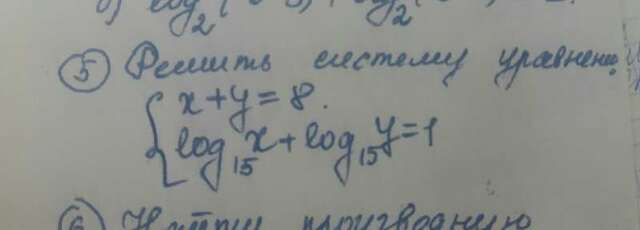 б) log₂(
⑤ Решить систему уравнени
{ x+y=8.
log₁₅x+log₁₅y=1
⑥ Найти производную